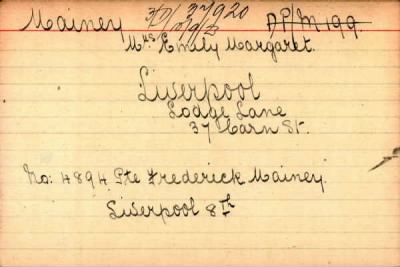 Mainey 37920 D.P/M 199.
Mrs Emily Margaret.
Liverpool
Lodge Lane
37 Carn St.
No: 4894 Pte Frederick Mainey.
Liverpool 8th